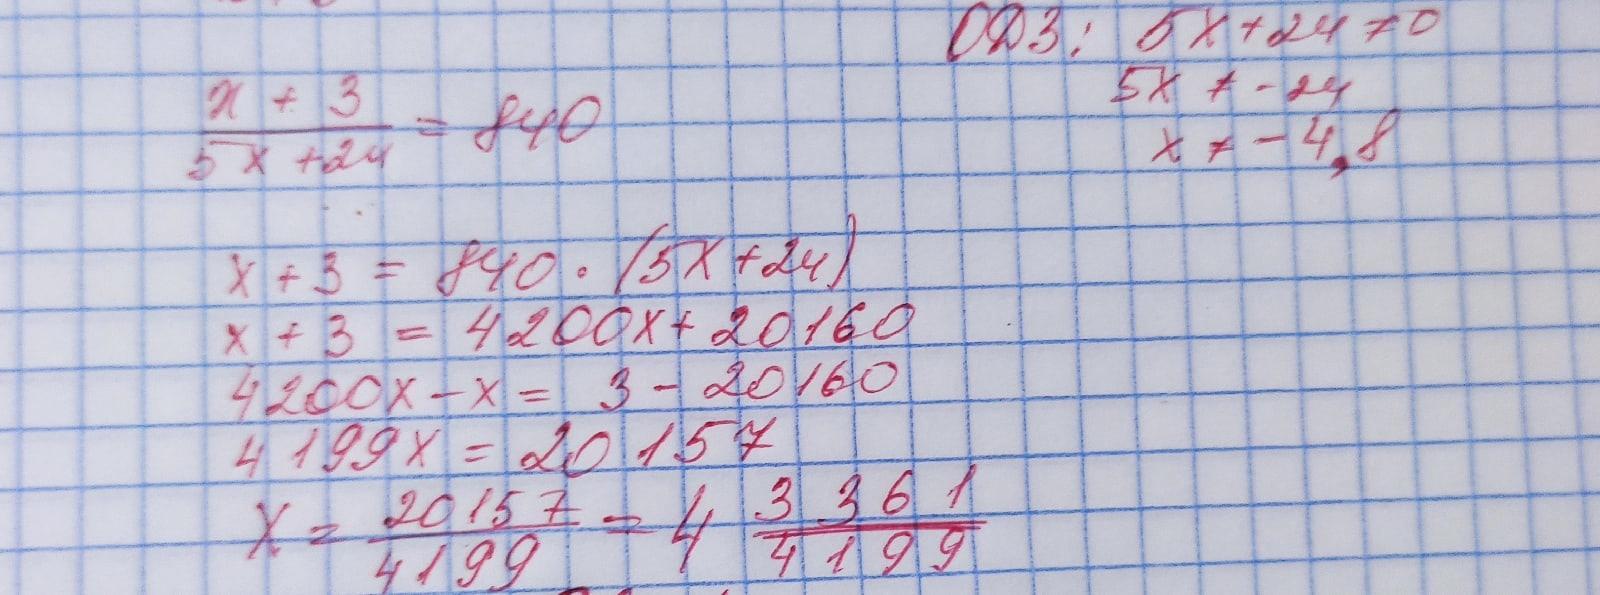 ОДЗ: 5x+24≠0
5x ≠ -24
x ≠ -4,8
(x + 3)/(5x+24) = 840
x + 3 = 840 · (5x+24)
x + 3 = 4200x + 20160
4200x - x = 3 - 20160
4199x = 20157
x = 20157/4199 = 4 3361/4199